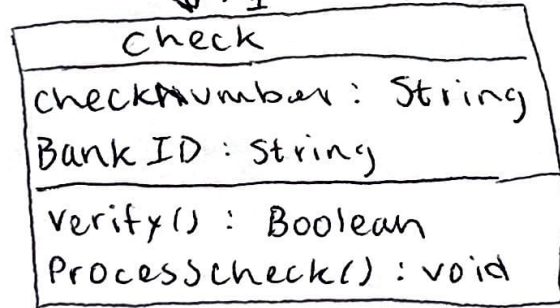 1
Check
checkNumber: String
Bank ID: String
verify(): Boolean
Processcheck(): void